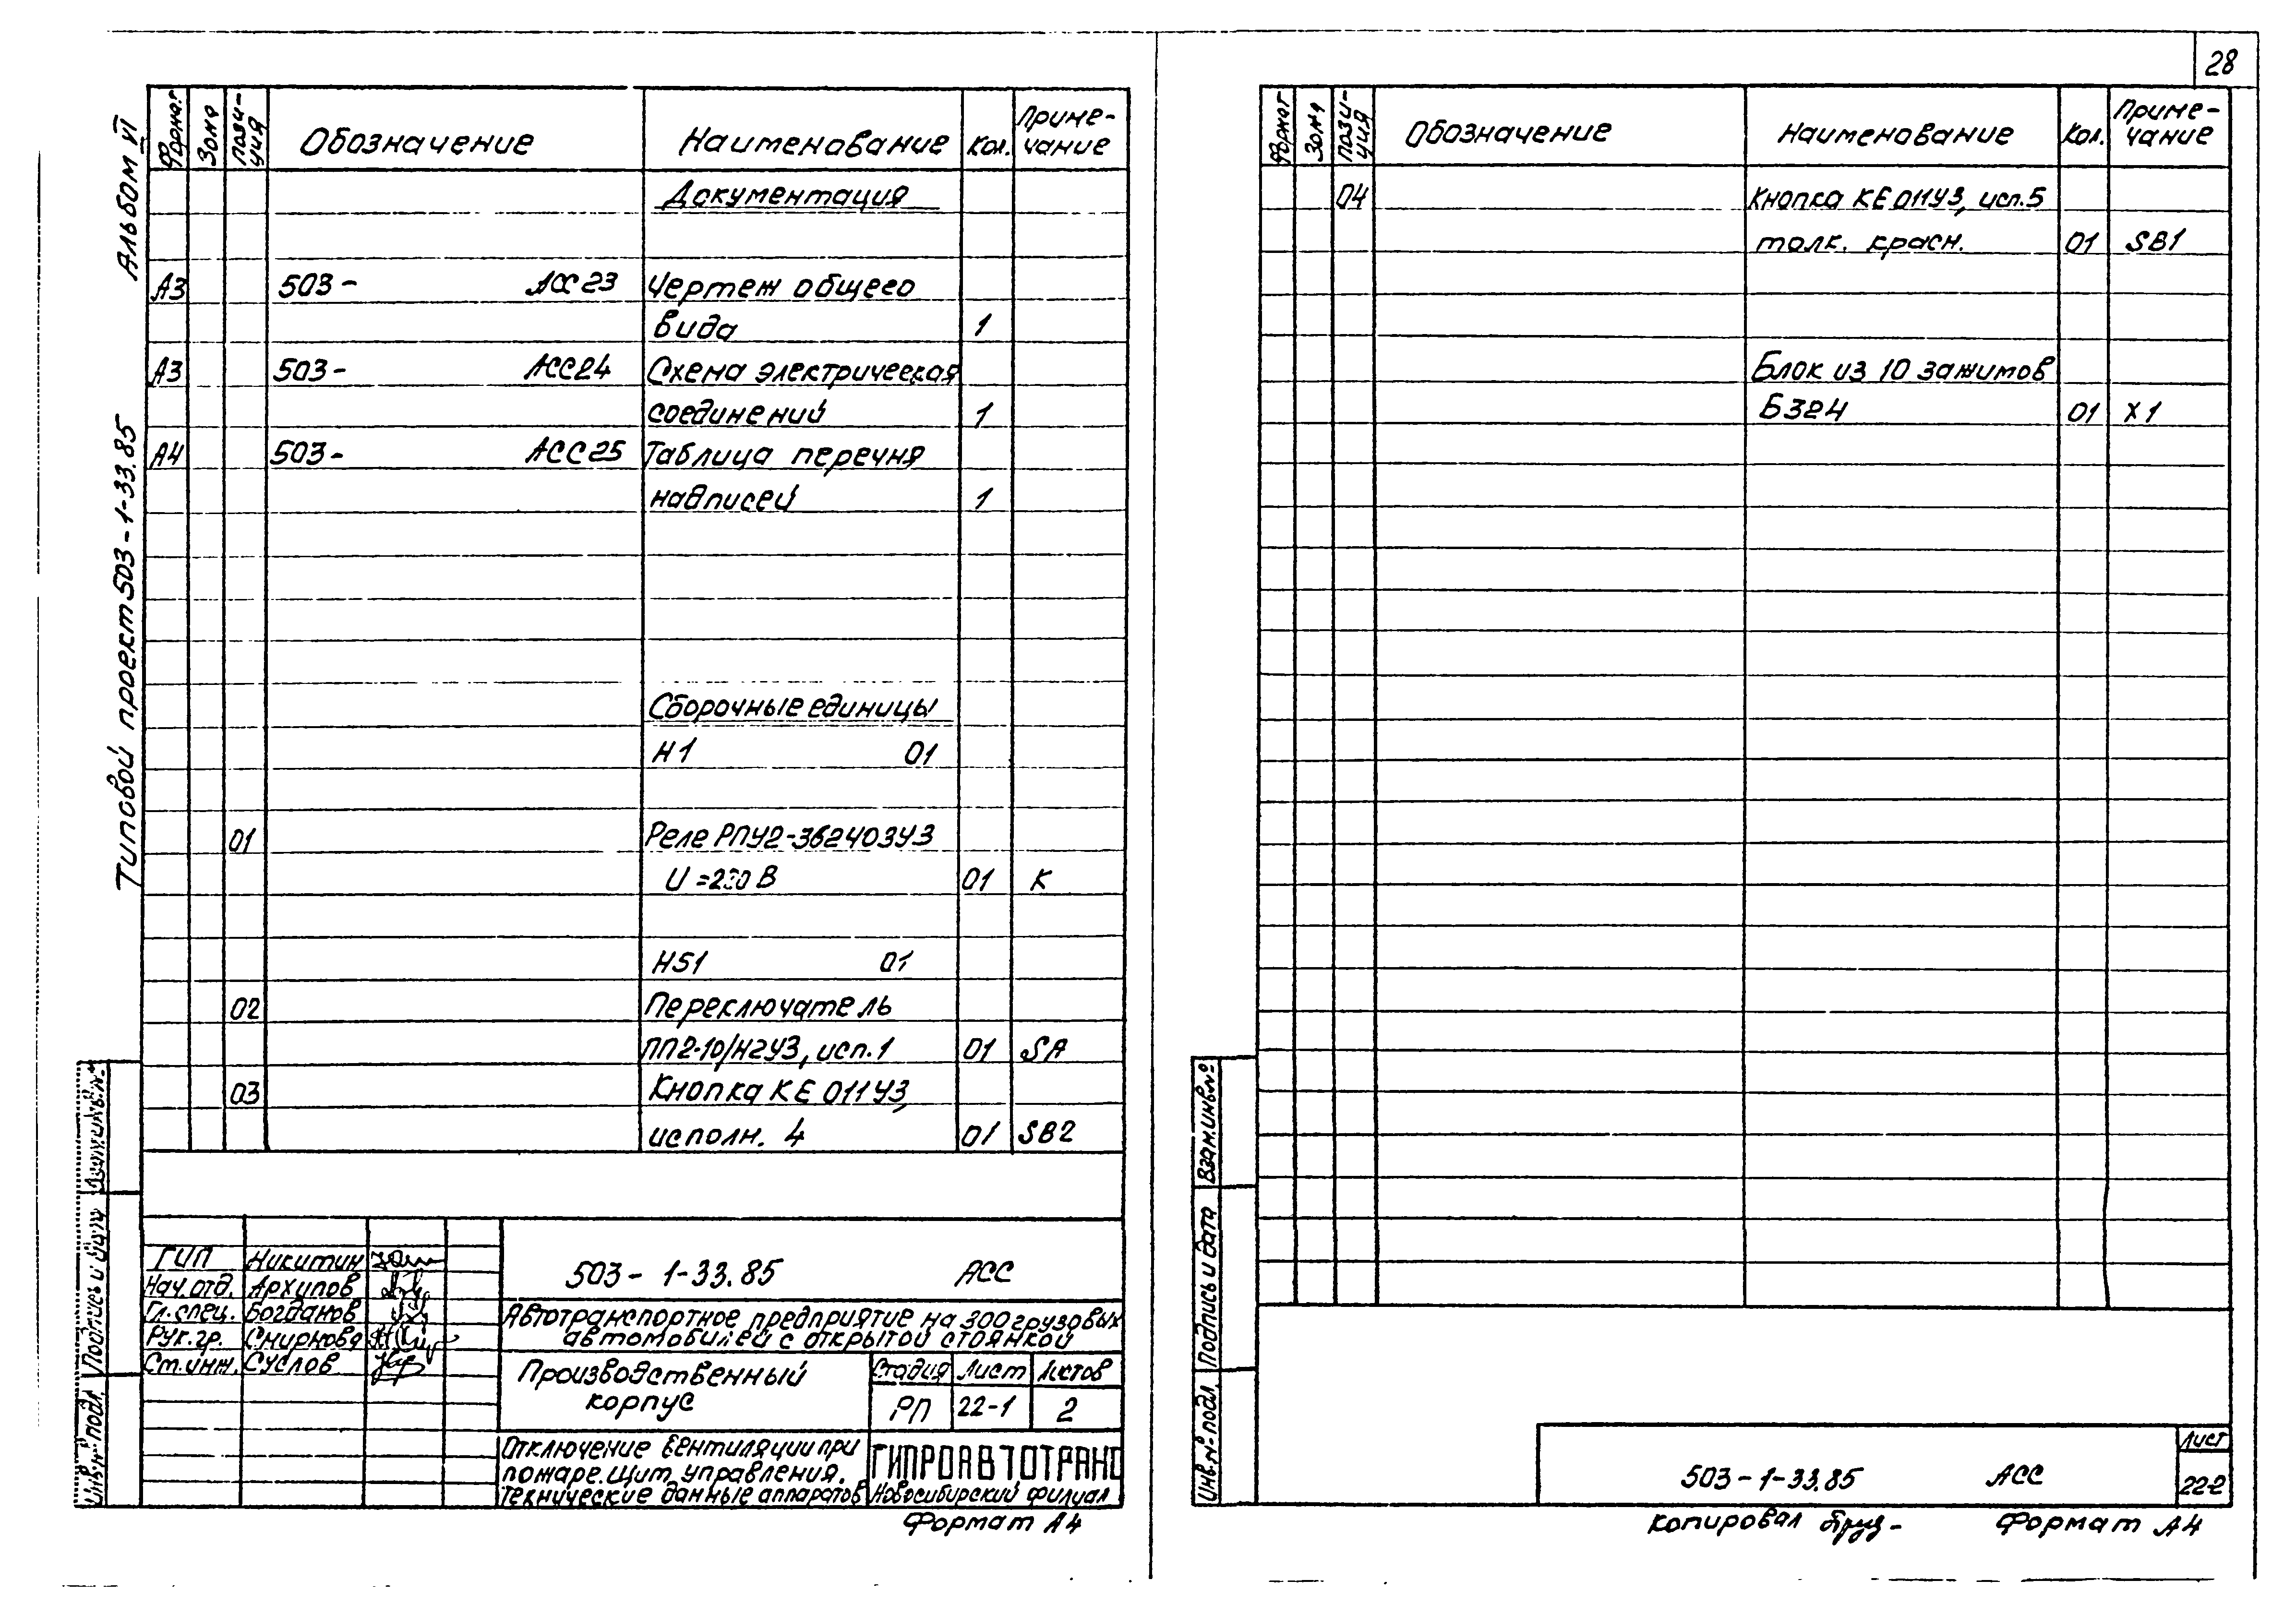 28
Альбом VI
Типовой проект 503-1-33.85
Формат Зона Пози-ция Обозначение Наименование Кол. Приме-чание
Документация
А3 503- АСС23 Чертеж общего
вида 1
А3 503- АСС24 Схема электрическая
соединений 1
А4 503- АСС25 Таблица перечня
надписей 1
Сборочные единицы
Н1 01
01 Реле РПУ2-362403У3
U = В 01 К
HS1 01
02 Переключатель
ПП2-10/Н2У3, исп.1 01 SA
03 Кнопка КЕ 011У3,
исполн. 4 01 SB2
Инв.№ подл. Подпись и дата Взам.инв.№
ГИП Никитин
Нач.отд. Архипов
Гл.спец. Богданов
Рук.гр. Смирнова
Ст.инж. Суслов
503-1-33.85 АСС
Автотранспортное предприятие на 300 грузовых
автомобилей с открытой стоянкой
Производственный
корпус
Стадия Лист Листов
РП 22-1 2
Отключение вентиляции при
пожаре. Щит управления.
Технические данные аппаратов
ГИПРОАВТОТРАНС
Новосибирский филиал
Формат А4
Формат Зона Пози-ция Обозначение Наименование Кол. Приме-чание
04 Кнопка КЕ 011У3, исп.5
толк. красн. 01 SB1
Блок из 10 зажимов
Б324 01 Х1
Инв.№ подл. Подпись и дата Взам.инв.№
503-1-33.85 АСС
Лист
22-2
Копировал
Формат А4